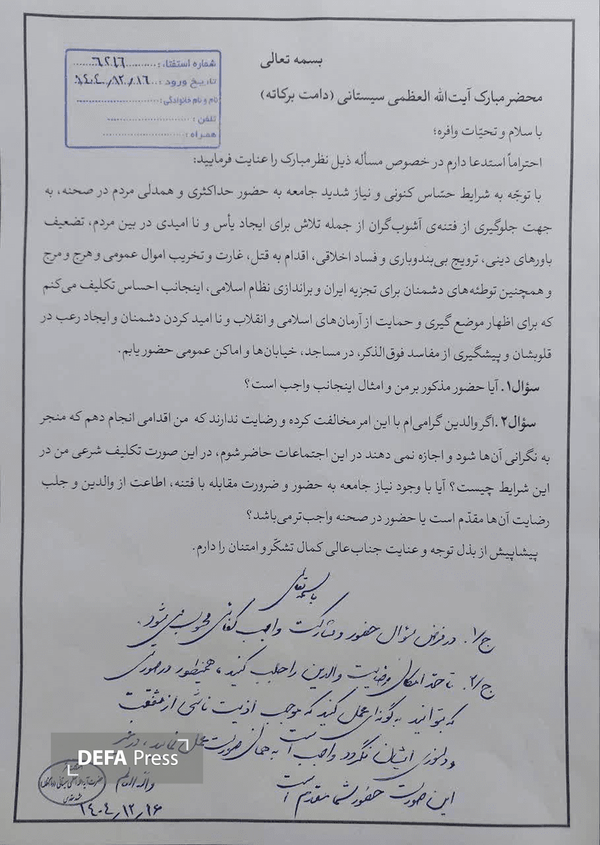 بسمه تعالی
شماره استفتاء: ۶۲۱۶
تاریخ ورود: ۱۴۰۴/۱۲/۱۶
نام و نام خانوادگی:
تلفن:
همراه:
محضر مبارک آیت‌الله العظمی سیستانی (دامت برکاته)
با سلام و تحیّات وافره؛
احتراماً استدعا دارم در خصوص مسأله ذیل نظر مبارک را عنایت فرمایید:
با توجّه به شرایط حسّاس کنونی و نیاز شدید جامعه به حضور حداکثری و همدلی مردم در صحنه، به
جهت جلوگیری از فتنه‌ی آشوب‌گران از جمله تلاش برای ایجاد یأس و نا امیدی در بین مردم، تضعیف
باورهای دینی، ترویج بی‌بندوباری و فساد اخلاقی، اقدام به قتل، غارت و تخریب اموال عمومی و هرج و مرج
و همچنین توطئه‌های دشمنان برای تجزیه ایران و براندازی نظام اسلامی، اینجانب احساس تکلیف می‌کنم
که برای اظهار موضع گیری و حمایت از آرمان‌های اسلامی و انقلاب و نا امید کردن دشمنان و ایجاد رعب در
قلوبشان و پیشگیری از مفاسد فوق‌الذکر، در مساجد، خیابان‌ها و اماکن عمومی حضور یابم.
سؤال۱. آیا حضور مذکور بر من و امثال اینجانب واجب است؟
سؤال۲. اگر والدین گرامی‌ام با این امر مخالفت کرده و رضایت ندارند که من اقدامی انجام دهم که منجر
به نگرانی آن‌ها شود و اجازه نمی دهند در این اجتماعات حاضر شوم، در این صورت تکلیف شرعی من در
این شرایط چیست؟ آیا با وجود نیاز جامعه به حضور و ضرورت مقابله با فتنه، اطاعت از والدین و جلب
رضایت آن‌ها مقدّم است یا حضور در صحنه واجب‌تر می‌باشد؟
پیشاپیش از بذل توجه و عنایت جناب‌عالی کمال تشکّر و امتنان را دارم.
باسمه تعالی
ج/۱. در فرض سؤال حضور و مشارکت واجب کفائی محسوب می شود.
ج/۲. تا حد امکان رضایت والدین را جلب کنید، همینطور در صورتی
که بتوانید به گونه‌ای عمل کنید که موجب اذیت ناشی از شفقت
و دلسوزی ایشان نگردد واجب است به همان صورت عمل نمایید، در غیر
این صورت حضور شما مقدم است
والله العالم
۱۴۰۴/۱۲/۱۶
DEFA Press